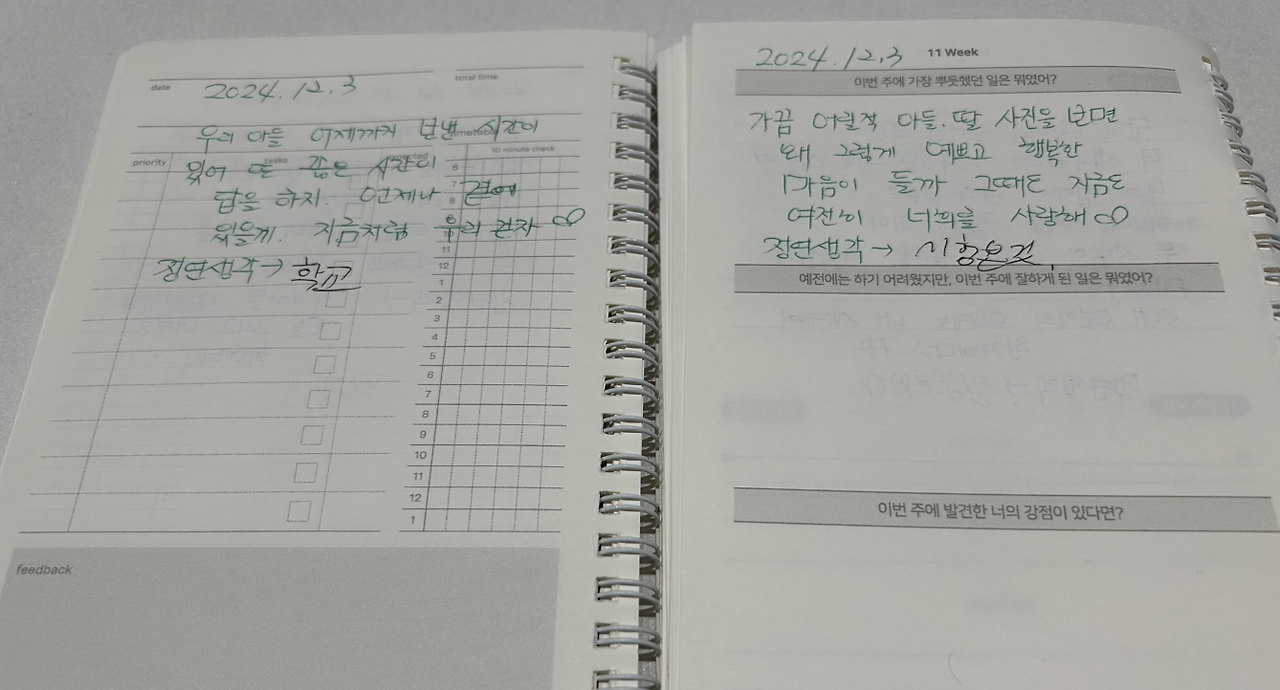 date 2024.12.3
total time
우리 아들 어제까지 보낸 시간이
timetable
priority tasks 10 minute check
있어 또 같은 시간이
답을 하지. 언제나 곁에
있을게. 지금처럼 우리 걷자 ∞
정연생각→ 학교
6
7
8
11
12
1
2
3
4
5
6
7
8
9
10
11
12
1
feedback
2024.12.3 11 Week
이번 주에 가장 뿌듯했던 일은 뭐였어?
가끔 어릴적 아들.딸 사진을 보면
왜 그렇게 예쁘고 행복한
마음이 들까 그때도 지금도
여전히 너희를 사랑해 ∞
정연생각→
예전에는 하기 어려웠지만, 이번 주에 잘하게 된 일은 뭐였어?
이번 주에 발견한 너의 강점이 있다면?